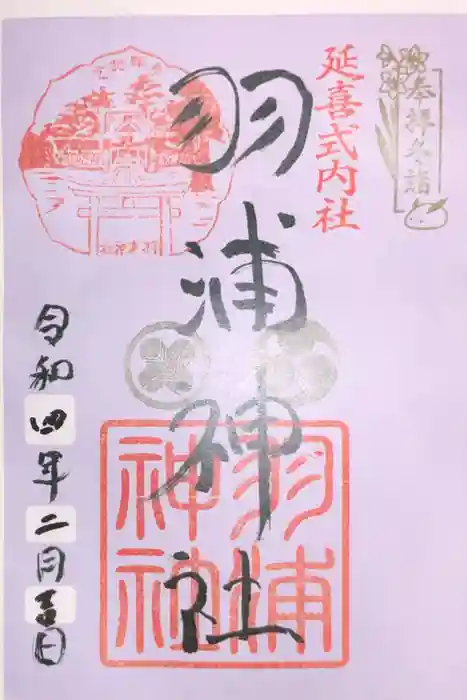 奉拝冬詣
延喜式内社
羽浦神社
羽浦
神社
令和四年二月吉日